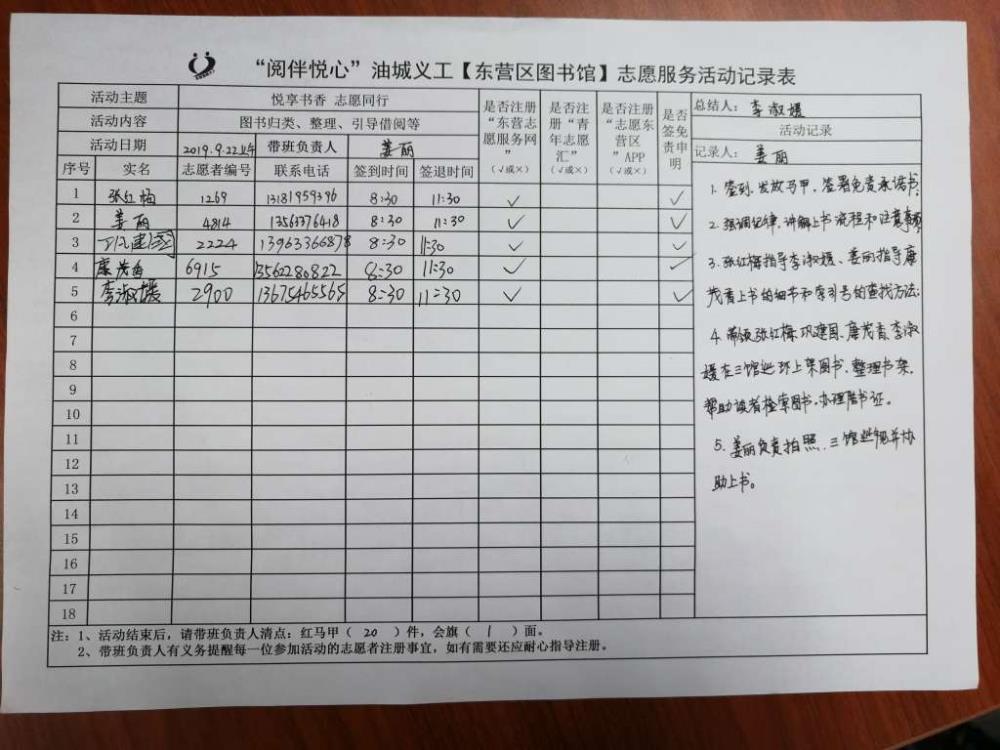 “阅伴悦心”油城义工【东营区图书馆】志愿服务活动记录表
活动主题 悦享书香 志愿同行
活动内容 图书归类、整理、引导借阅等
活动日期 2019.9.22上午 带班负责人 姜丽
序号 实名 志愿者编号 联系电话 签到时间 签退时间
是否注册“东营志愿服务网” (√或×)
是否注册“青年志愿汇” (√或×)
是否注册“志愿东营区”APP (√或×)
是否签免责申明
1 张红梅 1269 13181959396 8:30 11:30 √ √
2 姜丽 4814 13563376418 8:30 11:30 √ √
3 巩建国 2224 13963366878 8:30 11:30 √ √
4 康茂香 6915 13562280822 8:30 11:30 √ √
5 李淑媛 2900 13675465565 8:30 11:30 √ √
6
7
8
9
10
11
12
13
14
15
16
17
18
总结人: 李淑媛
活动记录
记录人: 姜丽
1. 签到、发放马甲、签署免责承诺书;
2. 强调纪律,讲解上书流程和注意事项
3. 张红梅指导李淑媛、姜丽指导康
茂香上书的细节和索引号的查找方法;
4. 带领张红梅、巩建国、康茂香、李淑
媛在三馆巡环上架图书、整理书架、
帮助读者检索图书、办理借书证。
5. 姜丽负责拍照、三馆巡视并协
助上书。
注: 1、活动结束后,请带班负责人清点: 红马甲( 20 )件,会旗( 1 )面。
2、带班负责人有义务提醒每一位参加活动的志愿者注册事宜,如有需要还应耐心指导注册。